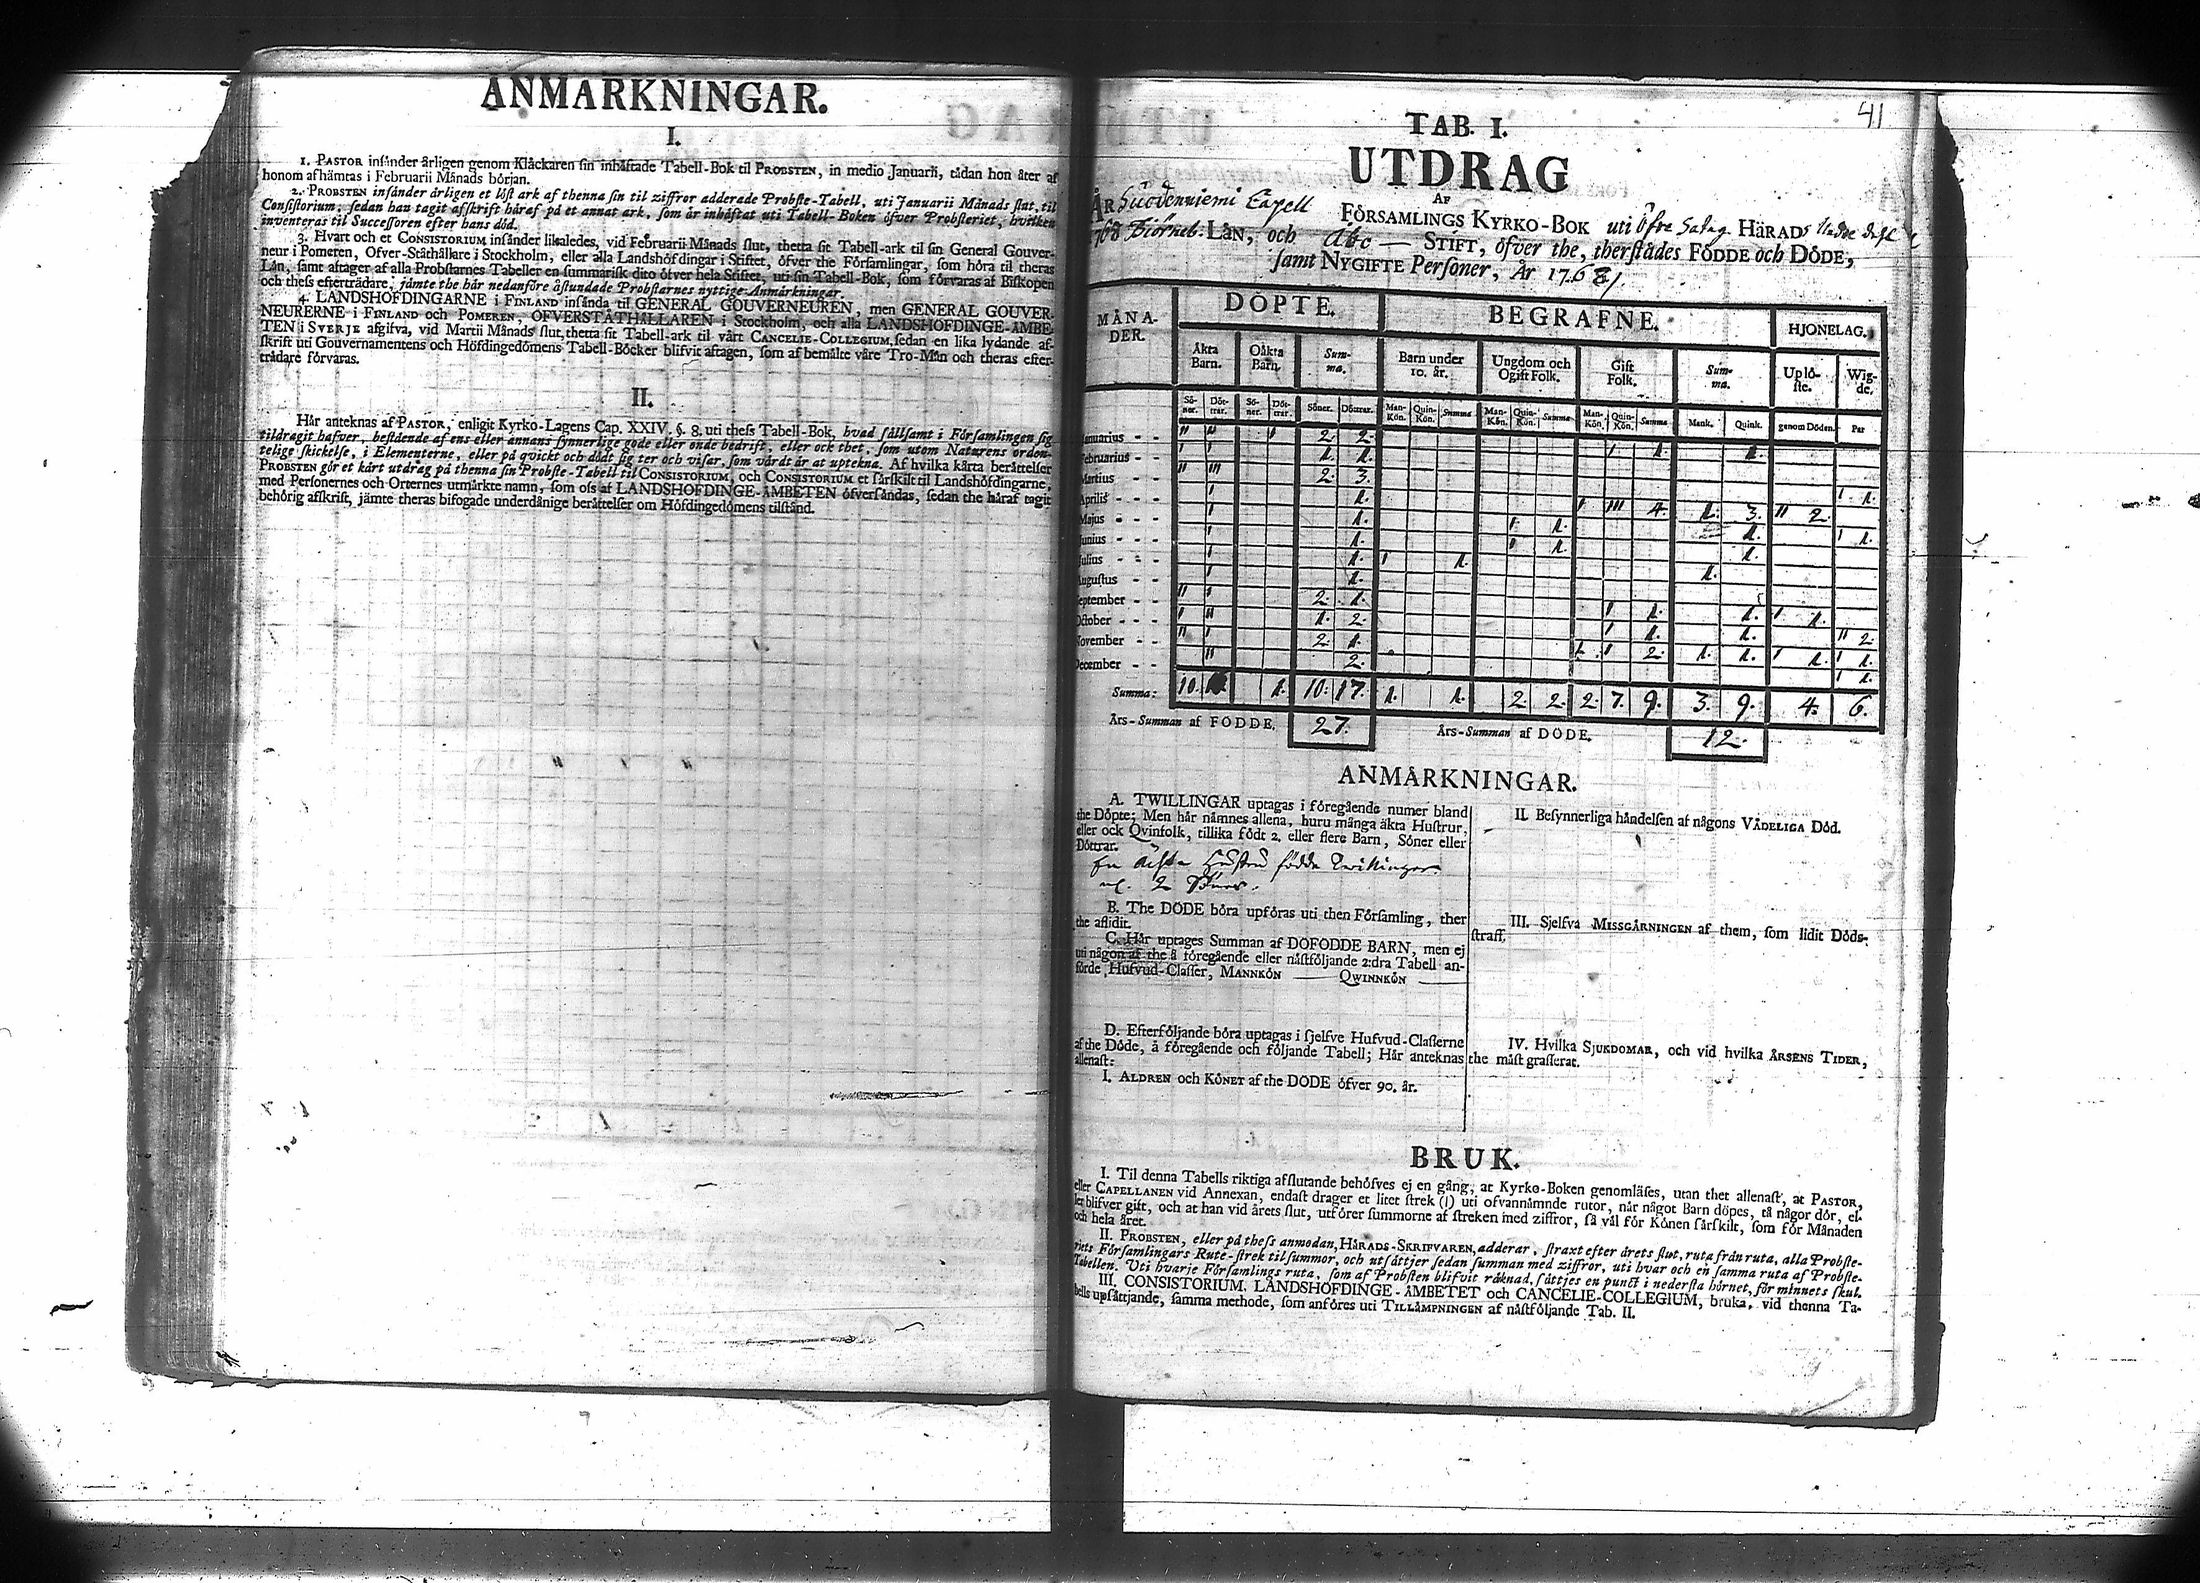 ANMÄRKNINGAR.
I.
1. PASTOR insänder årligen genom Klåckaren sin inhäftade Tabell-Bok til PROBSTEN, in medio Januarii, tådan hon åter af
honom afhämtas i Februarii Månads början.
2. PROBSTEN insänder årligen et löst ark af thenna sin til ziffror adderade Probste-Tabell, uti Januarii Månads slut, til
Consistorium; sedan han tagit afskrift häraf på et annat ark, som är inhäftat uti Tabell-Boken öfver Probsteriet, hvilken
inventeras til Successoren efter hans död.
3. Hvart och et CONSISTORIUM insänder likaledes, vid Februarii Månads slut, thetta sit Tabell-ark til sin General Gouver-
neur i Pomeren, Ofver-Ståthållare i Stockholm, eller alla Landshöfdingar i Stiftet, öfver the Församlingar, som höra til theras
Län, samt aftager af alla Probstarnes Tabeller en summarisk dito öfver hela Stiftet, uti sin Tabell-Bok, som förvaras af Biskopen
och thess efterträdare; jämte the här nedanföre åstundade Probstarnes nyttige Anmärkningar.
4. LANDSHÖFDINGARNE i FINLAND insända til GENERAL GOUVERNEUREN, men GENERAL GOUVER-
NEURERNE i FINLAND och POMEREN, ÖFVERSTÅTHÅLLAREN i Stockholm, och alla LANDSHÖFDINGE-ÄMBE-
TEN i SVERJE afgifva, vid Martii Månads slut, thetta sit Tabell-ark til vårt CANCELIE-COLLEGIUM, sedan en lika lydande af-
skrift uti Gouvernamentens och Höfdingedömens Tabell-Böcker blifvit aftagen, som af bemälte våre Tro-Män och theras efter-
trädare förvaras.
II.
Här anteknas af PASTOR, enligit Kyrko-Lagens Cap. XXIV. §. 8. uti thess Tabell-Bok, hvad sällsamt i Församlingen sig
tildragit hafver, bestående af ens eller annans synnerlige gode eller onde bedrift, eller ock thet, som utom Naturens orden-
telige skickelse, i Elementerne, eller på qvickt och dödt sig ter och visar, som värdt är at uptekna. Af hvilka kårta berättelser
PROBSTEN gör et kårt utdrag på thenna sin Probste-Tabell til CONSISTORIUM, och CONSISTORIUM et särskilt til Landshöfdingarne,
med Personernes och Orternes utmärkte namn, som oss af LANDSHÖFDINGE-ÄMBETEN öfversändas, sedan the häraf tagit
behörig afskrift, jämte theras bifogade underdånige berättelser om Höfdingedömens tilstånd.
41
TAB. I.
UTDRAG
AF
ÅR Suodenniemi Capell FÖRSAMLINGS KYRKO-BOK uti öfre Satag. HÄRADS
1768 Biörneb. LÄN, och Åbo — STIFT, öfver the, therstädes FÖDDE och DÖDE,
samt NYGIFTE Personer, År 1768.
MÅNA- DER. DÖPTE. BEGRAFNE. HJONELAG.
Äkta Barn. Oäkta Barn. Sum- ma. Barn under 10. år. Ungdom och Ogift Folk. Gift Folk. Sum- ma. Uplö- ste. Wig- de.
Sö- ner. Döt- trar. Sö- ner. Döt- trar. Söner. Döttrar. Man- Kön. Quin- Kön. Summa Man- Kön. Quin- Kön. Summa Man- Kön. Quin- Kön. Summa Mank. Quink. genom Döden. Par
Januarius - - II II I 2. 2.
Februarius - - I I 1. 1. I 1. 1.
Martius - - - II III 2. 3.
Aprilis - - - I 1. I III 4. 1. 3. II 2. I 1.
Majus - - - I 1. I 1. 1.
Junius - - - I 1. I 1. 1. I 1.
Julius - - - I 1. I 1. 1.
Augustus - - I 1.
September - - II I 2. 1. I 1. 1. I 1.
October - - - I II 1. 2. I 1. 1. II 2.
November - - II I 2. 1. I I 2. 1. 1. I 1. I 1.
December - - II 2. I 1.
Summa: 10. 1. 10. 17. 1. 1. 2. 2. 2. 7. 9. 3. 9. 4. 6.
Års-Summan af FÖDDE. 27. Års-Summan af DÖDE. 12.
ANMÄRKNINGAR.
A. TWILLINGAR uptagas i föregående numer bland
the Döpte; Men här nämnes allena, huru många äkta Hustrur,
eller ock Qvinfolk, tillika födt 2, eller flere Barn, Söner eller
Döttrar.
En ächta Hustru födde Twillingar
nl. 2 Söner.
B. The DÖDE böra upföras uti then Församling, ther
the aflidit.
C. Här uptages Summan af DÖFÖDDE BARN, men ej
uti någon af the å föregående eller nästföljande 2:dra Tabell an-
förde Hufvud-Classer, MANNKÖN —— QWINNKÖN ——
D. Efterföljande böra uptagas i sjelfve Hufvud-Classerne
af the Döde, å föregående och följande Tabell; Här anteknas
allenast:
I. ÅLDREN och KÖNET af the DÖDE öfver 90. år.
II. Besynnerliga händelsen af någons VÅDELIGA Död.
III. Sjelfva MISSGÄRNINGEN af them, som lidit Döds-
straff.
IV. Hvilka SJUKDOMAR, och vid hvilka ÅRSENS TIDER,
the mäst grasserat.
BRUK.
I. Til denna Tabells riktiga afslutande behöfves ej en gång, at Kyrko-Boken genomläses, utan thet allenast, at PASTOR,
eller CAPELLANEN vid Annexan, endast drager et litet strek (|) uti ofvannämnde rutor, när något Barn döpes, tå någor dör, el-
ler blifver gift, och at han vid årets slut, utförer summorne af streken med ziffror, så väl för Könen särskilt, som för Månaden
och hela året.
II. PROBSTEN, eller på thess anmodan, HÄRADS-SKRIFVAREN, adderar, straxt efter årets slut, ruta från ruta, alla Probste-
riets Församlingars Rute-strek til summor, och utsättjer sedan summan med ziffror, uti hvar och en samma ruta af Probste-
Tabellen. Uti hvarje Församlings ruta, som af Probsten blifvit räknad, sättjes en punct i nedersta hörnet, för minnets skul.
III. CONSISTORIUM, LANDSHÖFDINGE-ÄMBETET och CANCELIE-COLLEGIUM, bruka, vid thenna Ta-
bells upsättjande, samma methode, som anföres uti TILLÄMPNINGEN af nästföljande Tab. II.